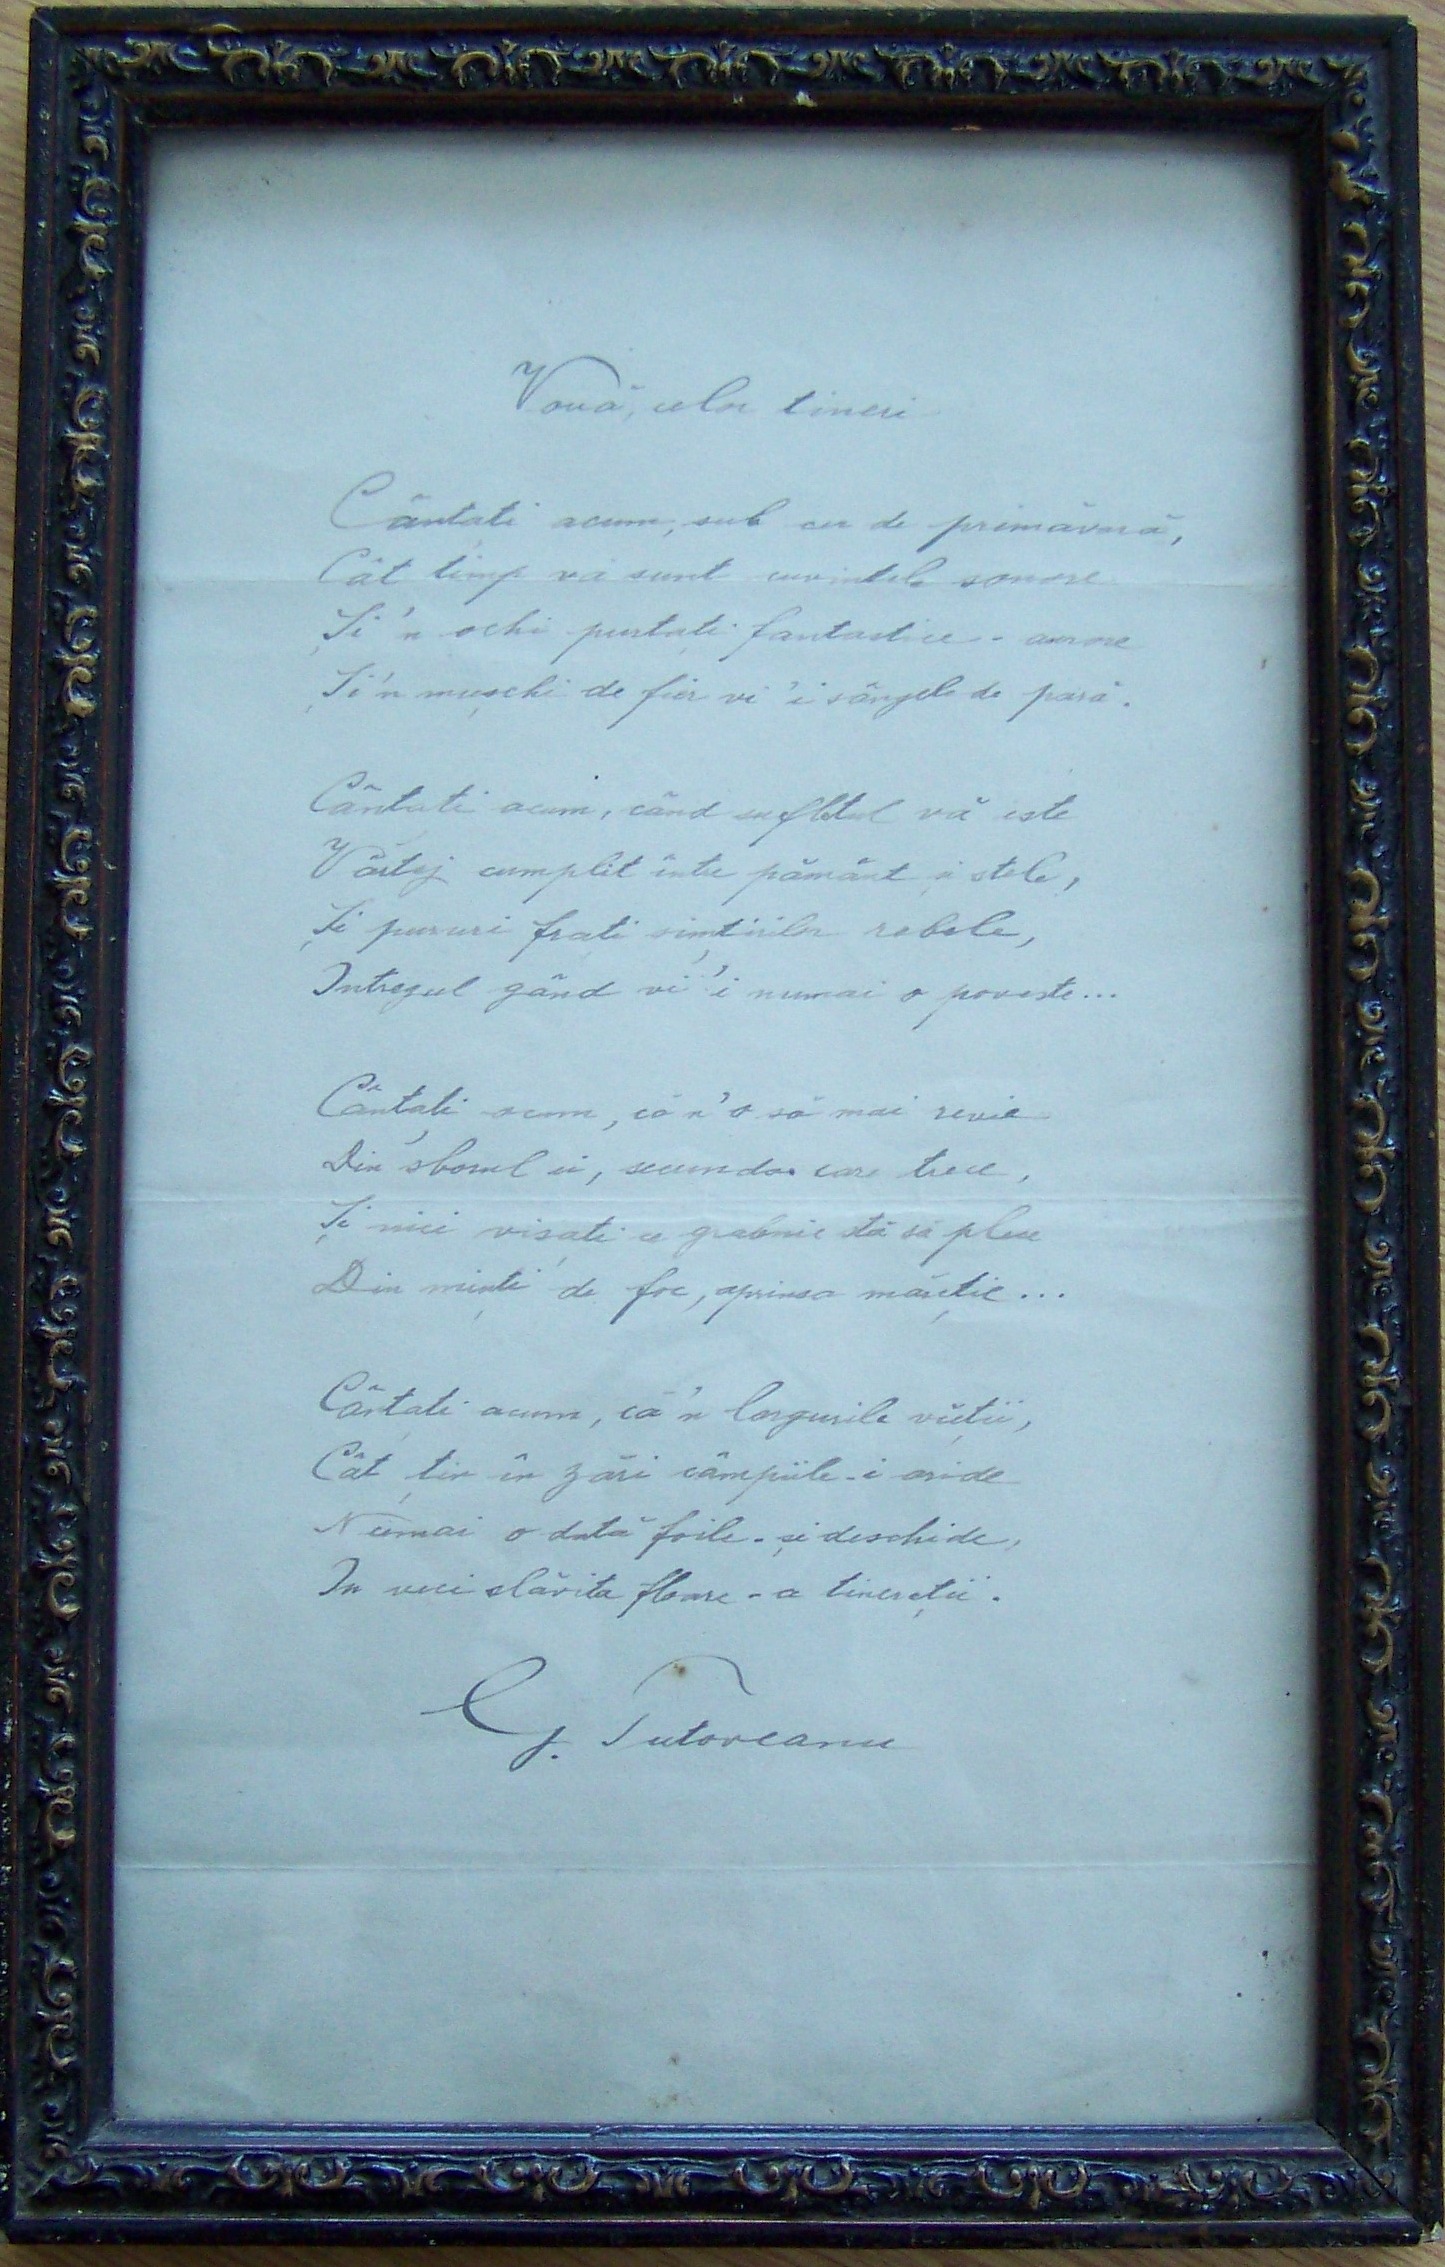 Vouă, celor tineri
Cântați acum, sub cer de primăvară,
Cât timp vă sunt cuvintele sonore
Și'n ochi purtați fantastice - aurore
Și'n mușchi de fier vi'i sângele de pară.
Cântați acum, când sufletul vă este
Vârtej cumplit între pământ și stele,
Și pururi frați simțirilor rebele,
Intregul gând vi'i numai o poveste...
Cântați acum, că n'o să mai revie
Din sborul ei, secunda care trece,
Și nici visați ce grabnic stă să plece
Din minți de foc, aprinsa măreție...
Cântați acum, că'n largurile vieții,
Cât țin în zări câmpiile-i aride
Numai o dată foile-și deschide,
In veci slăvita floare-a tinereții.
G. Tutoveanu